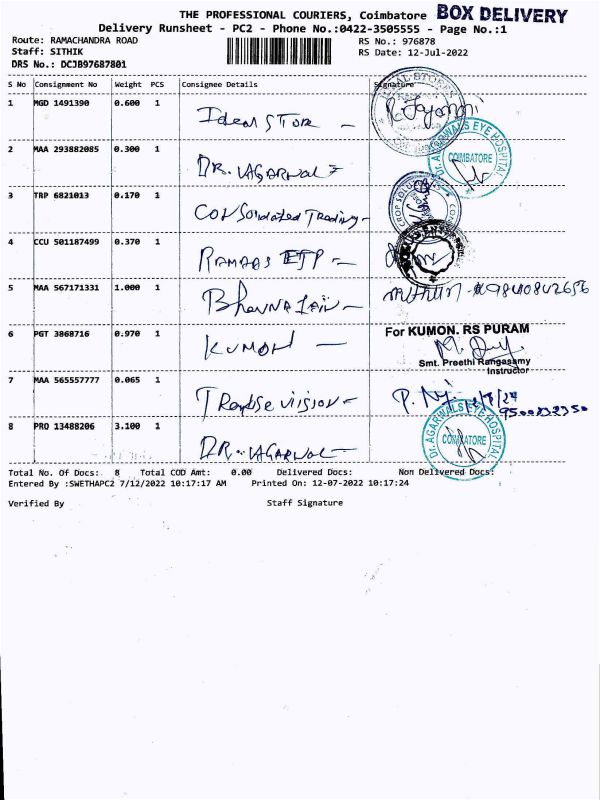 THE PROFESSIONAL COURIERS, Coimbatore BOX DELIVERY
Delivery Runsheet - PC2 - Phone No.:0422-3505555 - Page No.:1
Route: RAMACHANDRA ROAD RS No.: 976878
Staff: SITHIK RS Date: 12-Jul-2022
DRS No.: DCJB97687801
S No Consignment No Weight PCS Consignee Details Signature
1 MGD 1491390 0.600 1
Ideal STOR -
2 MAA 293882085 0.300 1
Dr. AGARWALS EYE HOSPITAL
COIMBATORE
DR. AGARWAL
3 TRP 6821013 0.170 1
Consolidated Trading -
4 CCU 501187499 0.370 1
5 MAA 567171331 1.000 1
Bhavna Jain - 9840842656
6 PGT 3868716 0.970 1 For KUMON. RS PURAM
KUMON -
Smt. Preethi Rangasamy
Instructor
7 MAA 565557777 0.065 1
8 PRO 13488206 3.100 1
Dr. AGARWALS EYE HOSPITAL
COIMBATORE
DR. AGARWAL -
Total No. Of Docs: 8 Total COD Amt: 0.00 Delivered Docs: Non Delivered Docs:
Entered By :SWETHAPC2 7/12/2022 10:17:17 AM Printed On: 12-07-2022 10:17:24
Verified By Staff Signature